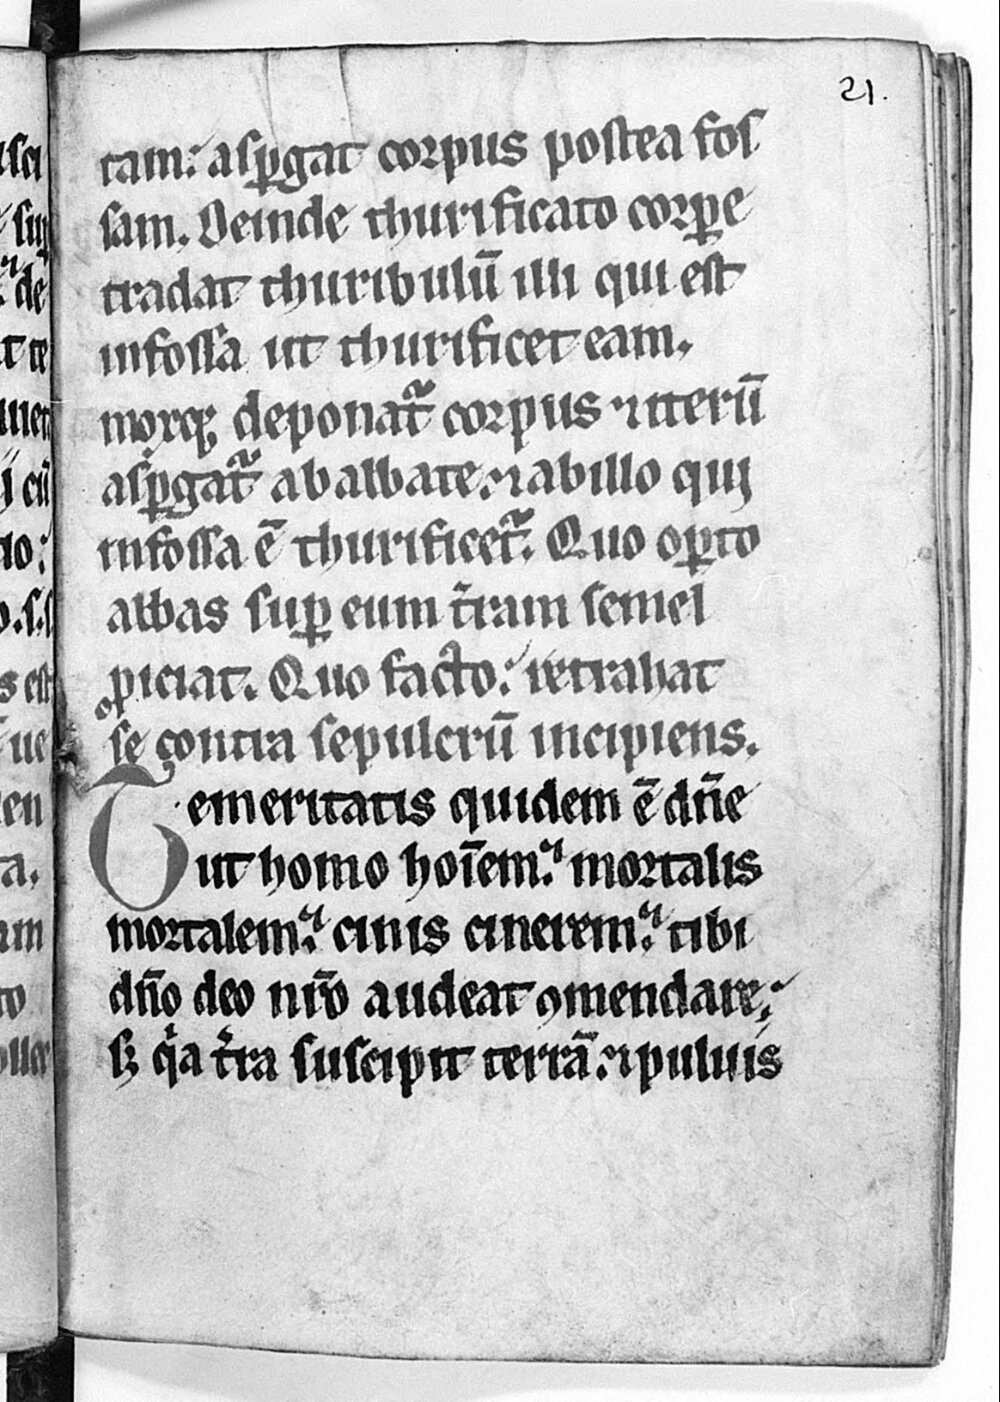 21.
tam: asꝑgat corpus postea fos
sam. Deinde thurificato corꝑe
tradat thuribulū illi qui est
infossa ut thurificet eam.
moxq; deponat᷑ corpus ⁊ iterū
asꝑgat᷑ ab abbate: ⁊ abillo qui
infossa ē thurificet᷑. Quo oꝑto
abbas suꝑ eum t̄ram semel
ꝓiciat. Quo facto: retrahat
se contra sepulcrū incipiens.
Temeritatis quidem ē dn̄e
ut homo hoīem. mortalis
mortalem. cinis cinerem. tibi
dn̄o deo nr̄o audeat ꝯmendare;
sꝫ qͥa t̄ra suscipit terrā: ⁊ puluis